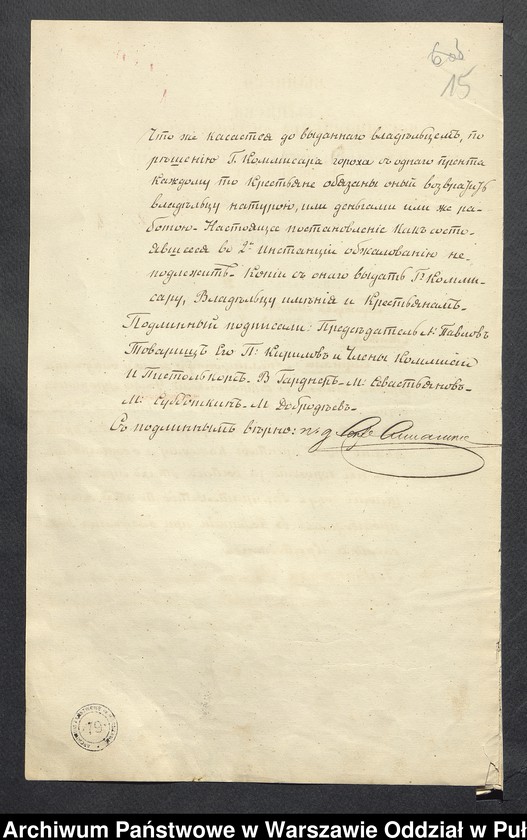 15
Что же касается до выданнаго владѣльцемъ, по
рѣшенію Г. Коммисара гороха съ однаго прента
каждому то Крестьяне обязаны оный возвратить
владѣльцу натурою, или деньгами или же ра-
ботою. Настоящее постановленіе какъ состо-
явшееся во 2й инстанціи обжалованію не-
подлежитъ. Копіи съ онаго выдать Гну Комми-
сару, Владѣльцу имѣнія и Крестьянамъ.
Подлинный подписали: Предсѣдатель Н: Павловъ
Товарищъ Его П: Кириловъ и Члены Коммисіи
И Пистолькорсъ. В Гарднеръ. М: Севастьяновъ.
М: Субботкинъ. М Добродѣевъ.
Съ подлиннымъ вѣрно:
19
Archiwum Państwowe w Warszawie Oddział w Puł